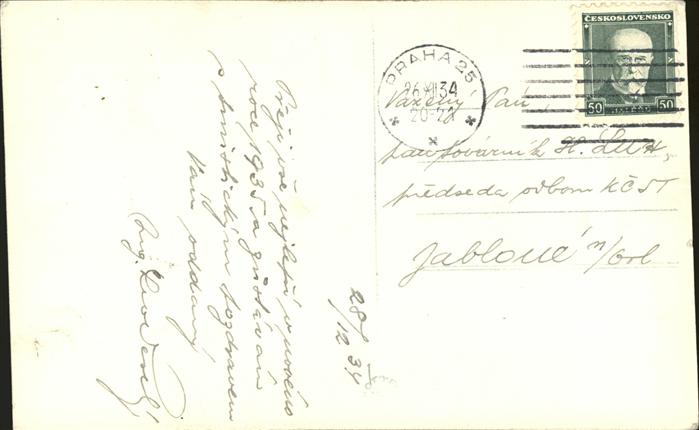 Přeji vše nejlepší v novém
roce 1935 a zůstávám
s turistickým pozdravem
Vám oddaný
Ing.
28/12 34
PRAHA 25
26 XII 34
20-24
ČESKOSLOVENSKO
50 50
HALÉŘŮ
Vážený Pan
továrník
předseda odboru KČST
Jablonné n/Orl